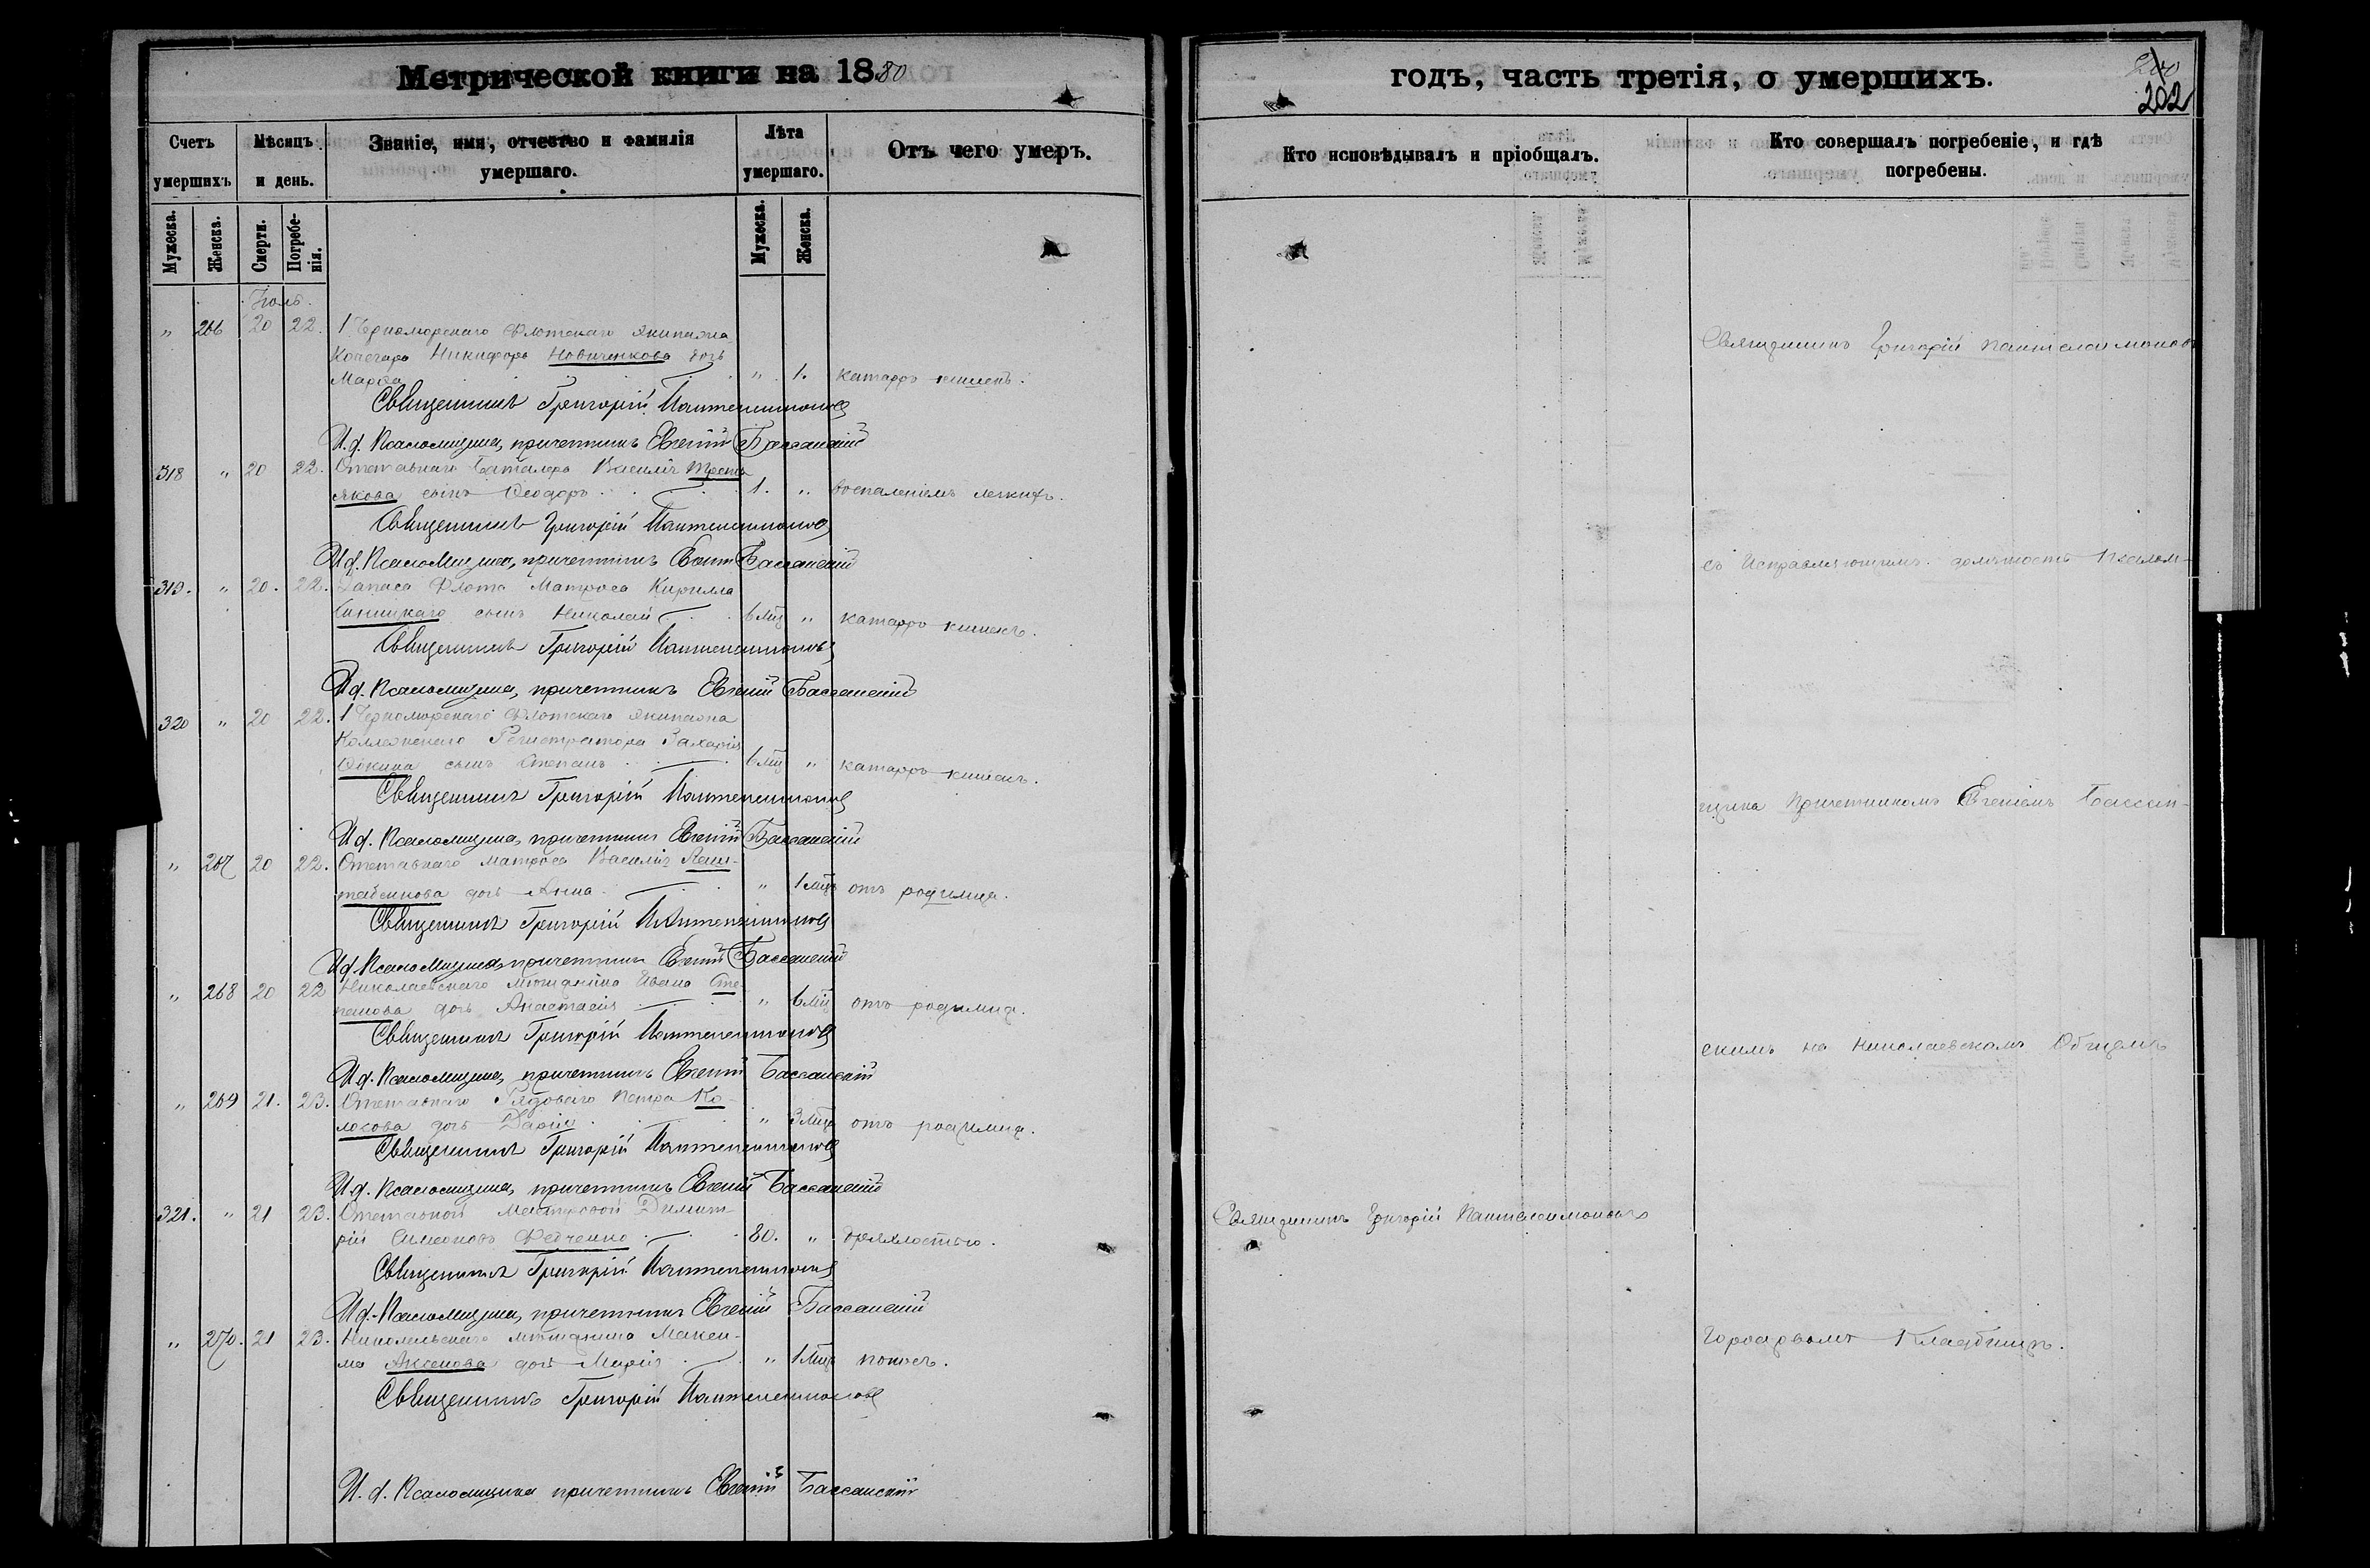 Метрической книги на 1880
Счетъ умершихъ
Мѣсяцъ и день.
Званіе, имя, отчество и фамилія умершаго.
Лѣта умершаго.
Отъ чего умеръ.
Мужеска.
Женска.
Смерти.
Погребенія.
Мужеска.
Женска.
Іюль.
" 266 20 22. 1 Черноморскаго Флотскаго Экипажа
Кочегара Никифора Новиченкова дочь
Марѳа " 1. катарръ кишекъ.
Священникъ Григорій Пантелеимоновъ
И. д. Псаломщика, причетникъ Евгеній Бассанскій
318 " 20 22. Отставнаго Баталера Василія Треть
якова сынъ Ѳеодоръ 1. " воспаленіемъ легкихъ.
Священникъ Григорій Пантелеимоновъ
И д. Псаломщика, причетникъ Евгеній Бассанскій
319. " 20. 22. Запаса Флота Матроса Кирилла
сынъ Николай 6 мц " катарръ кишекъ.
Священникъ Григорій Пантелеимоновъ
И д. Псаломщика, причетникъ Евгеній Бассанскій
320 " 20 22. 1 Черноморскаго Флотскаго Экипажа
Коллежскаго Регистратора Захарія
сынъ Степанъ 6 мц " катарръ кишекъ.
Священникъ Григорій Пантелеимоновъ
И д. Псаломщика, причетникъ Евгеній Бассанскій
" 267 20 22. Отставнаго матроса Василія
дочь Анна " 1 мць отъ родимца.
Священникъ Григорій Пантелеимоновъ
И д. Псаломщика, причетникъ Евгеній Бассанскій
" 268 20 22 Николаевскаго мѣщанина Ивана Сте
панова дочь Анастасія " 6 мц отъ родимца.
Священникъ Григорій Пантелеимоновъ
И д. Псаломщика, причетникъ Евгеній Бассанскій
" 269 21. 23. Отставнаго Рядоваго Петра Ко-
лосова дочь Дарія " 3 мца отъ родимца.
Священникъ Григорій Пантелеимоновъ
И д. Псаломщика, причетникъ Евгеній Бассанскій
321. " 21 23. Отставной Мастеровой Димит-
рій Симеоновъ Федченко 80. " дряхлостью.
Священникъ Григорій Пантелеимоновъ
И д. Псаломщика, причетникъ Евгеній Бассанскій
" 270. 21 23. мѣщанина Макси-
ма Аксенова дочь Марія " 1 мць поносъ.
Священникъ Григорій Пантелеимоновъ
И. д. Псаломщика причетникъ Евгеній Бассанскій
годъ, часть третія, о умершихъ.
202
Кто исповѣдывалъ и пріобщалъ.
Кто совершалъ погребеніе, и гдѣ погребены.
Священникъ Григорій Пантелеимоновъ
съ Исправляющимъ должность Псалом-
щика Причетникомъ Евгеніемъ Бассан-
скимъ на Николаевскомъ Общемъ
Священникъ Григорій Пантелеимоновъ
Городскомъ Кладбищѣ.